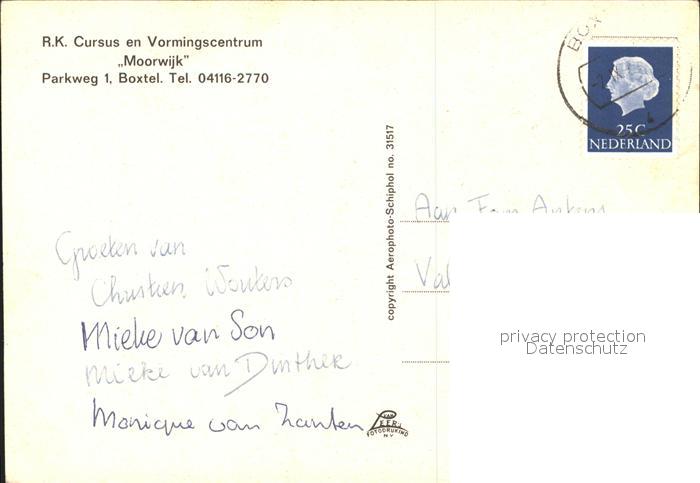 R.K. Cursus en Vormingscentrum
„Moorwijk”
Parkweg 1, Boxtel. Tel. 04116-2770
BOX
25C
NEDERLAND
copyright Aerophoto-Schiphol no. 31517
Aan Fam
Val
Groeten van
Christien Wouters
Mieke van Son
Mieke van Dinther
Monique van Zanten
VAN
LEER's
FOTODRUKIND
N.V.
privacy protection
Datenschutz